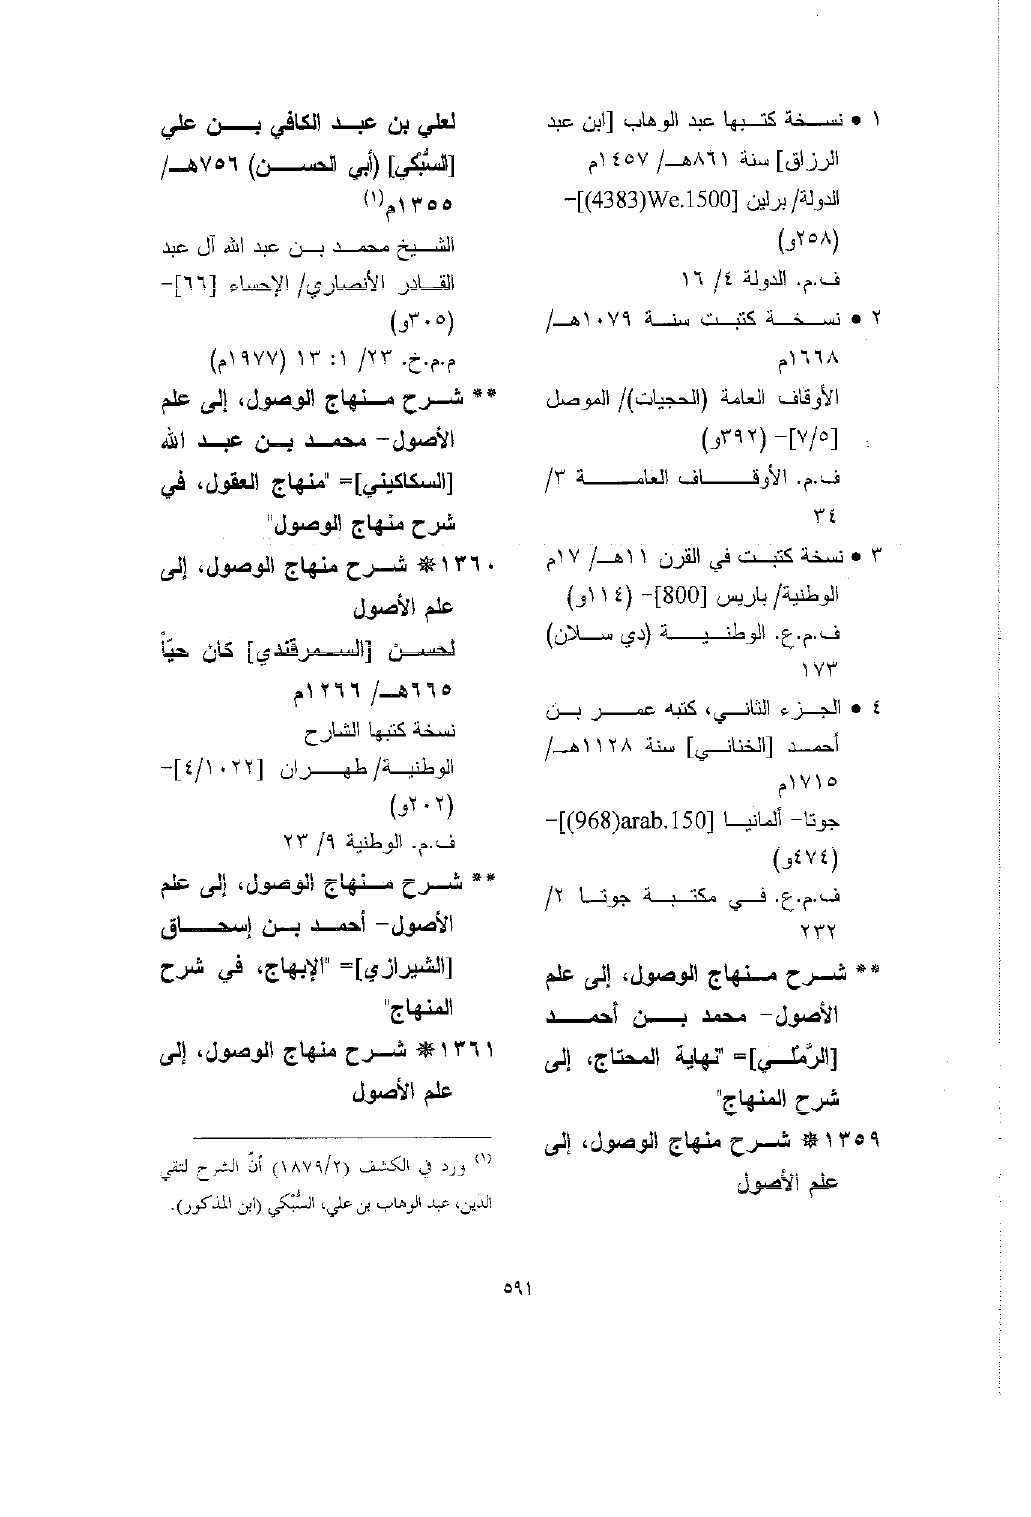 ١ • نسخة كتبها عبد الوهاب [ابن عبد
الرزاق] سنة ٨٦١هـ/ ١٤٥٧م
الدولة/ برلين [We.1500(4383)]-
(٢٥٨و)
ف.م. الدولة ٤/ ١٦
٢ • نسخة كتبت سنة ١٠٧٩هـ/
١٦٦٨م
الأوقاف العامة (الحجيات)/ الموصل
[٧/٥]- (٣٩٢و)
ف.م. الأوقاف العامة ٣/
٣٤
٣ • نسخة كتبت في القرن ١١هـ/ ١٧م
الوطنية/ باريس [800]- (١١٤و)
ف.م.ع. الوطنية (دي سلان)
١٧٣
٤ • الجزء الثاني، كتبه عمر بن
أحمد [الخناني] سنة ١١٢٨هـ/
١٧١٥م
جوتا- ألمانيا [arab.150(968)]-
(٤٧٤و)
ف.م.ع. في مكتبة جوتا ٢/
٢٣٢
** شرح منهاج الوصول، إلى علم
الأصول- محمد بن أحمد
[الرَّملي]= "نهاية المحتاج، إلى
شرح المنهاج"
١٣٥٩* شرح منهاج الوصول، إلى
علم الأصول
لعلي بن عبد الكافي بن علي
[السُّبْكي] (أبي الحسن) ٧٥٦هـ/
١٣٥٥م(١)
الشيخ محمد بن عبد الله آل عبد
القادر الأنصاري/ الإحساء [٦٦]-
(٣٠٥و)
م.م.خ. ٢٣/ ١: ١٣ (١٩٧٧م)
** شرح منهاج الوصول، إلى علم
الأصول- محمد بن عبد الله
[السكاكيني]= "منهاج العقول، في
شرح منهاج الوصول"
١٣٦٠* شرح منهاج الوصول، إلى
علم الأصول
لحسن [السمرقندي] كان حيّاً
٦٦٥هـ/ ١٢٦٦م
نسخة كتبها الشارح
الوطنية/ طهران [٤/١٠٢٢]-
(٢٠٢و)
ف.م. الوطنية ٩/ ٢٣
** شرح منهاج الوصول، إلى علم
الأصول- أحمد بن إسحاق
[الشيرازي]= "الإبهاج، في شرح
المنهاج"
١٣٦١* شرح منهاج الوصول، إلى
علم الأصول
(١) ورد في الكشف (١٨٧٩/٢) أنّ الشرح لتقي
الدين، عبد الوهاب بن علي، السُّبْكي (ابن المذكور).
٥٩١